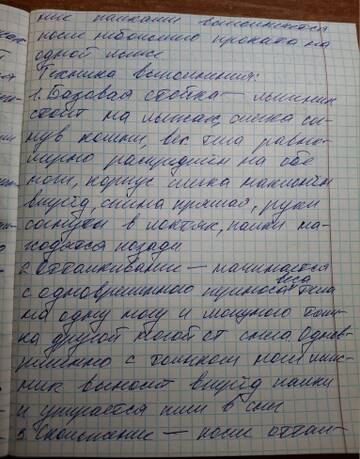 ние палками выполняется
после небольшого проката на
одной лыже
Техника выполнения:
1. Базовая стойка — лыжник
стоит на лыжах, слегка со-
гнув колени, вес тела равно-
мерно распределён на обе
ноги, корпус слегка наклонён
вперёд, спина прямая, руки
согнуты в локтях, палки на-
ходятся позади
2. Отталкивание — начинается
с одновременного переноса веса тела
на одну ногу и мощного толч-
ка другой ногой от снега. Одно-
временно с толчком ноги лыж-
ник выносит вперёд палки
и упирается ими в снег
3. Скольжение — после оттал-